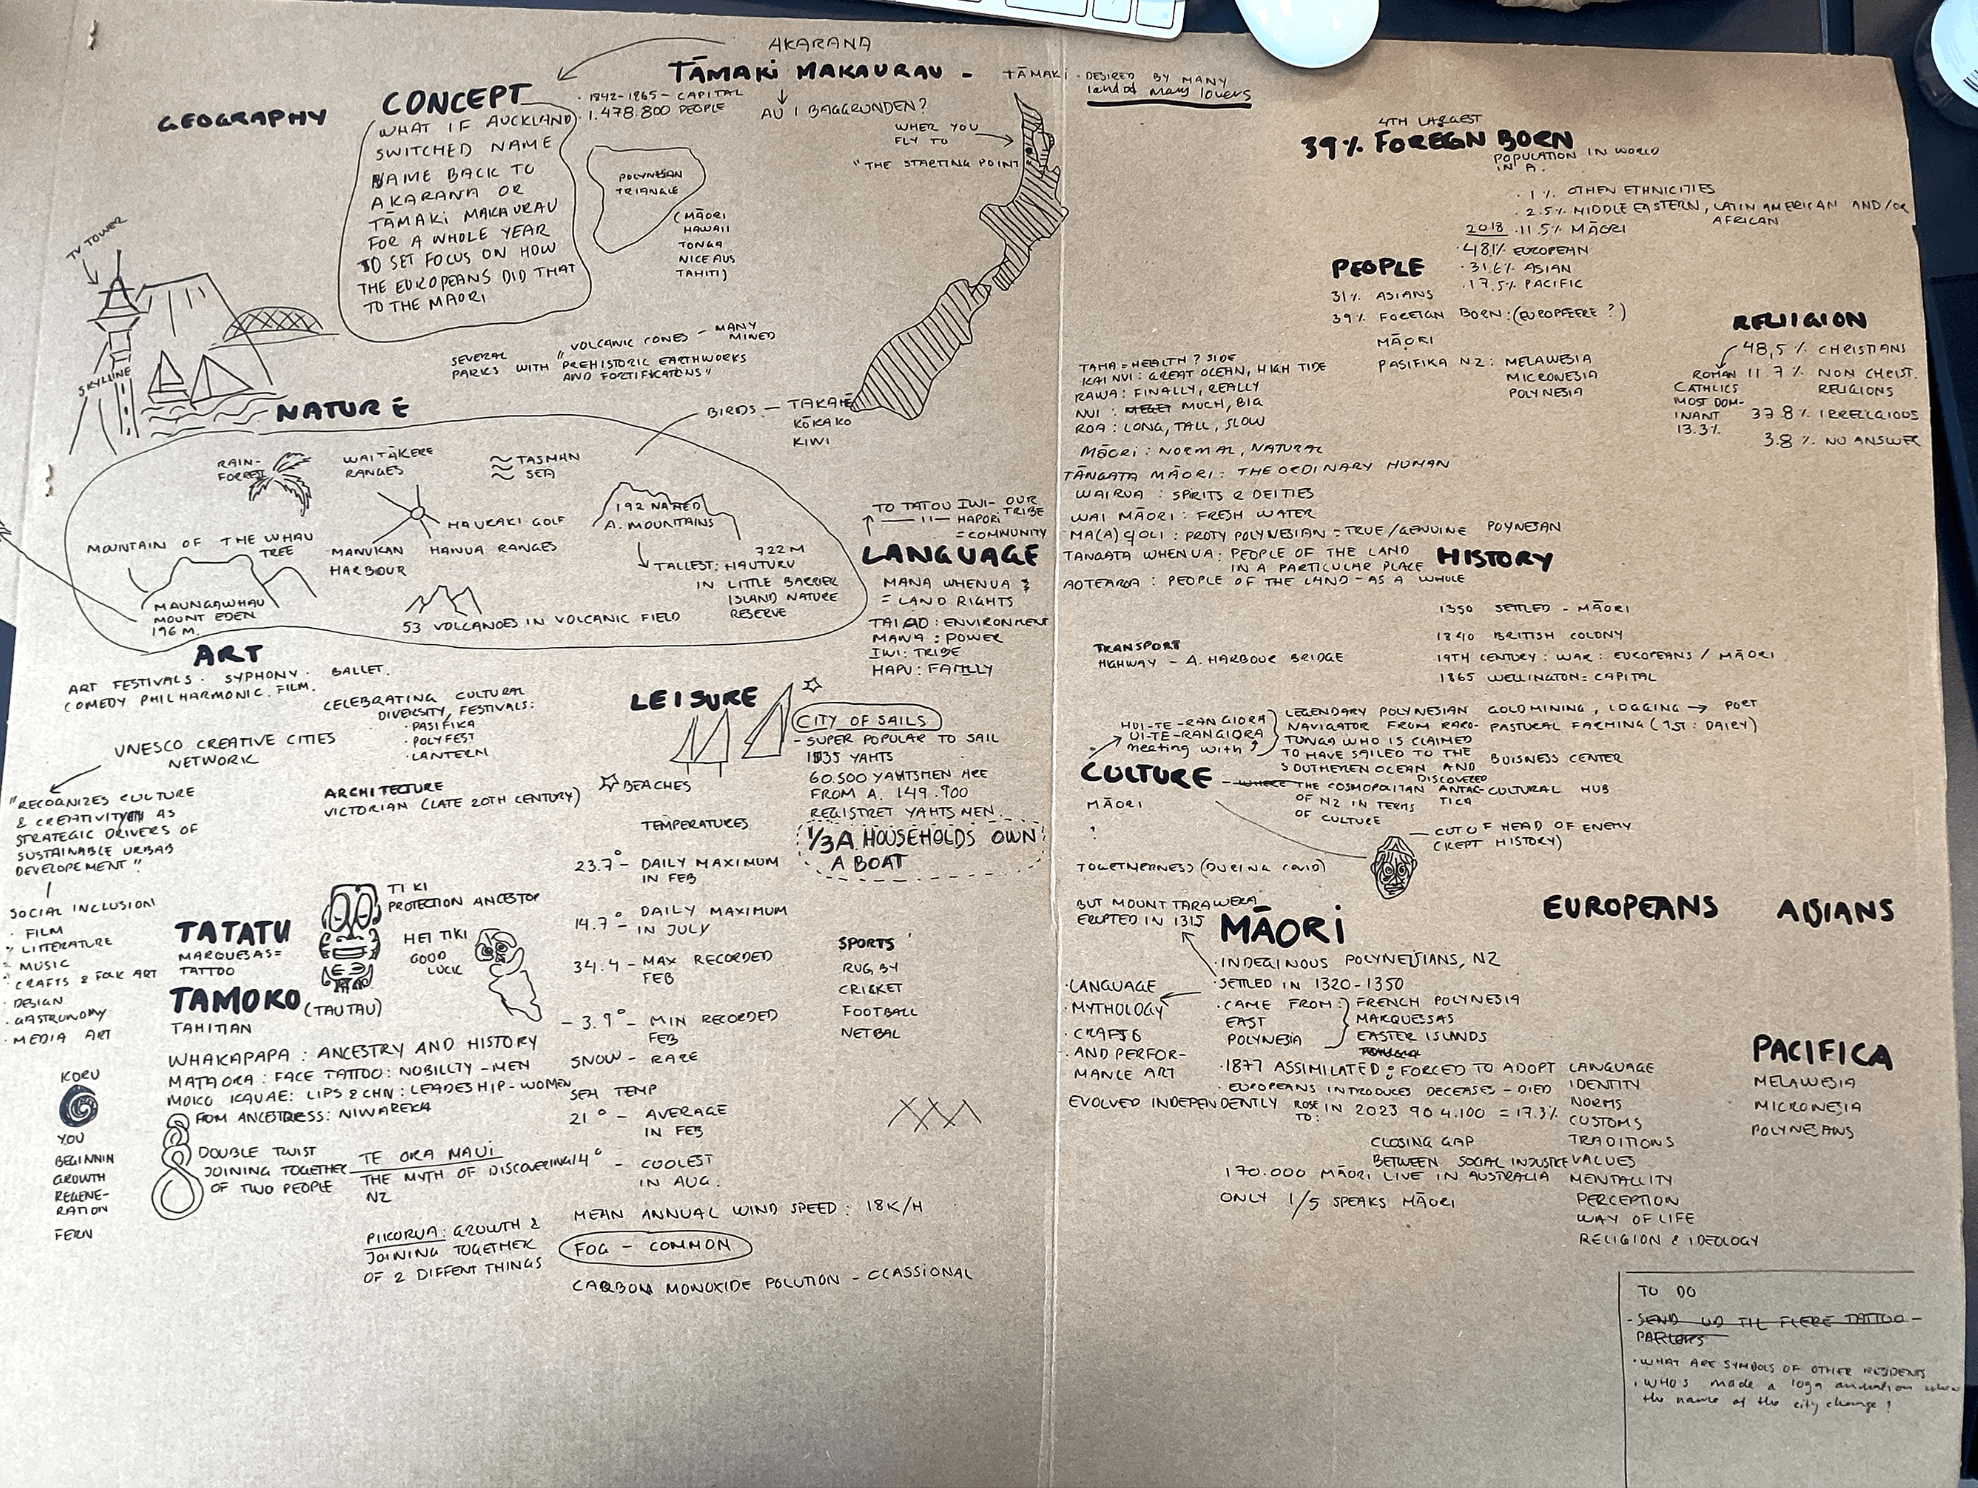 AKARANA
TĀMAKI MAKAURAU - TĀMAKI - DESIRED BY MANY
land of many lovers
GEOGRAPHY
CONCEPT
WHAT IF AUCKLAND
SWITCHED NAME
NAME BACK TO
AKARANA OR
TĀMAKI MAKAURAU
FOR A WHOLE YEAR
TO SET FOCUS ON HOW
THE EUROPEANS DID THAT
TO THE MAORI
· 1842-1865 - CAPITAL
· 1.478.800 PEOPLE
AU I BAGGRUNDEN?
WHER YOU
FLY TO
"THE STARTING POINT
POLYNESIAN
TRIANGLE
(MĀORI
HAWAII
TONGA
NICEAUS
TAHITI)
TV TOWER
SKYLLINE
SEVERAL
PARKS WITH
"VOLCANIC CONES - MANY
MINED
PREHISTORIC EARTHWORKS
AND FORTIFICATONS"
NATURE
BIRDS - TAKAHĒ
KŌKAKO
KIWI
RAIN-
FOREST
WAITĀKERE
RANGES
TASMAN
SEA
192 NAMED
A. MOUNTAINS
HAURAKI GOLF
MOUNTAIN OF THE WHAU
TREE
MANUKAN
HARBOUR
HANUA RANGES
722 M
TALLEST: HAUTURU
IN LITTLE BARRIER
ISLAND NATURE
RESERVE
MAUNGAWHAU
MOUNT EDEN
196 M.
53 VOLCANOES IN VOLCANIC FIELD
TO TATOU IWI - OUR
TRIBE
— 11 — HAPORI
= COMMUNITY
LANGUAGE
MANA WHENUA
= LAND RIGHTS
TAIAO: ENVIRONMENT
MANA: POWER
IWI: TRIBE
HAPU: FAMILLY
ART
ART FESTIVALS · SYPHONY · BALLET.
COMEDY PHILHARMONIC. FILM.
CELEBRATING CULTURAL
DIVERSITY, FESTIVALS:
· PASIFIKA
· POLYFEST
· LANTERN
UNESCO CREATIVE CITIES
NETWORK
"RECOGNIZES CULTURE
& CREATIVITY AS
STRATEGIC DRIVERS OF
SUSTAINABLE URBAB
DEVELOPEMENT"
SOCIAL INCLUSION
· FILM
· LITTERATURE
· MUSIC
· CRAFTS & FOLK ART
· DESIGN
· GASTRONOMY
· MEDIA ART
ARCHITECTURE
VICTORIAN (LATE 20TH CENTURY)
LEISURE
CITY OF SAILS
- SUPER POPULAR TO SAIL
YAHTS
60.500 YAHTSMEN ARE
FROM A. 149.900
REGISTRET YAHTS MEN.
1/3 A. HOUSEHOLDS OWN
A BOAT
BEACHES
TEMPERATURES
23.7° - DAILY MAXIMUM
IN FEB
14.7° - DAILY MAXIMUM
IN JULY
34.4 - MAX RECORDED
FEB
- 3.9° - MIN RECORDED
FEB
SNOW - RARE
SEA TEMP
21° - AVERAGE
IN FEB
14° - COOLEST
IN AUG.
MEAN ANNUAL WIND SPEED: 18 K/H
FOG - COMMON
CARBON MONOXIDE POLUTION - CCASSIONAL
SPORTS
RUGBY
CRICKET
FOOTBALL
NETBAL
TATATU
MARQUESAS =
TATTOO
TIKI
PROTECTION ANCESTOR
HEI TIKI
GOOD
LUCK
TAMOKO (TAUTAU)
TAHITIAN
WHAKAPAPA: ANCESTRY AND HISTORY
MATAORA: FACE TATTOO: NOBILLTY - MEN
MOKO KAUAE: LIPS & CHN: LEADESHIP - WOMEN
FROM ANCESTRESS: NIWAREKA
KORU
YOU
BEGINNIN
GROWTH
REGENE-
RATION
FERN
DOUBLE TWIST
JOINING TOGETHER
OF TWO PEOPLE
TE ORA MAUI
THE MYTH OF DISCOVERING
NZ
PIKORUA: GROWTH &
JOINING TOGETHER
OF 2 DIFFENT THINGS
4TH LARGEST
39% FOREGN BORN
POPULATION IN WORLD
IN A.
· 1% OTHER ETHNICITIES
· 2.5% MIDDLE EASTERN, LATIN AMERICAN AND/OR
AFRICAN
2018 · 11.5% MĀORI
· 48.1% EUROPEAN
· 31.6% ASIAN
· 17.5% PACIFIC
PEOPLE
31% ASIANS
39% FOREIGN BORN: (EUROPÆERE?)
MĀORI
PASIFIKA NZ: MELAWESIA
MICRONESIA
POLYNESIA
RELIGION
48,5% CHRISTIANS
ROMAN
CATHLICS
MOST DOM-
INANT
13.3%
11.7% NON CHRIST.
RELIGIONS
37.8% IRRELIGIOUS
3.8% NO ANSWER
TAHA = HEALTH? SIDE
KAI NUI: GREAT OCEAN, HIGH TIDE
RAWA: FINALLY, REALLY
NUI: MEGET MUCH, BIG
ROA: LONG, TALL, SLOW
MĀORI: NORMAL, NATURAL
TĀNGATA MĀORI: THE ORDINARY HUMAN
WAIRUA: SPIRITS & DEITIES
WAI MĀORI: FRESH WATER
MA(A)QOLI: PROTY POLYNESIAN = TRUE/GENUINE POLYNESIAN
TANGATA WHENUA: PEOPLE OF THE LAND
IN A PARTICULAR PLACE
AOTEAROA: PEOPLE OF THE LAND - AS A WHOLE
HISTORY
1350 SETTLED - MĀORI
1840 BRITISH COLONY
19TH CENTURY: WAR: EUROPEANS / MĀORI
1865 WELLINGTON = CAPITAL
GOLDMINING, LOGGING → PORT
PASTURAL FARMING (1ST: DAIRY)
BUISNESS CENTER
CULTURAL HUB
TRANSPORT
HIGHWAY - A. HARBOUR BRIDGE
HUI-TE-RANGIORA
UI-TE-RANGIORA
meating with
LEGENDARY POLYNESIAN
NAVIGATOR FROM RARO-
TONGA WHO IS CLAIMED
TO HAVE SAILED TO THE
SOUTHEREN OCEAN AND
DISCOVERED
ANTAC-
TICA
CULTURE - WHERE THE COSMOPOLITAN
OF NZ IN TERMS
OF CULTURE
MĀORI
?
CUT OF HEAD OF ENEMY
(KEPT HISTORY)
TOGETHERNESS (DURING COVID)
BUT MOUNT TARAWERA
ERUPTED IN 1315
MĀORI
· INDEGINOUS POLYNESIANS, NZ
· SETTLED IN 1320-1350
· CAME FROM:
EAST
POLYNESIA
FRENCH POLYNESIA
MARQUESSAS
EASTER ISLANDS
· LANGUAGE
· MYTHOLOGY
· CRAFTS
· AND PERFOR-
MANCE ART
EVOLVED INDEPENDENTLY
· 1877 ASSIMILATED: FORCED TO ADOPT LANGUAGE
IDENTITY
NORMS
CUSTOMS
TRADITIONS
VALUES
MENTALLITY
PERCEPTION
WAY OF LIFE
RELIGION & IDEOLOGY
· EUROPEANS INTRODUCES DECEASES - DIED
ROSE
TO:
IN 2023 904.100 = 17.3%
CLOSING GAP
BETWEEN SOCIAL INJUSTICE
170.000 MĀORI LIVE IN AUSTRALIA
ONLY 1/5 SPEAKS MĀORI
EUROPEANS
ASIANS
PACIFICA
MELAWESIA
MICRONESIA
POLYNESIANS
TO DO
- SEND UD TIL FLERE TATTOO -
PARLORS
· WHAT ARE SYMBOLS OF OTHER RESIDENTS
· WHO'S made a logo when
the name of the city change?